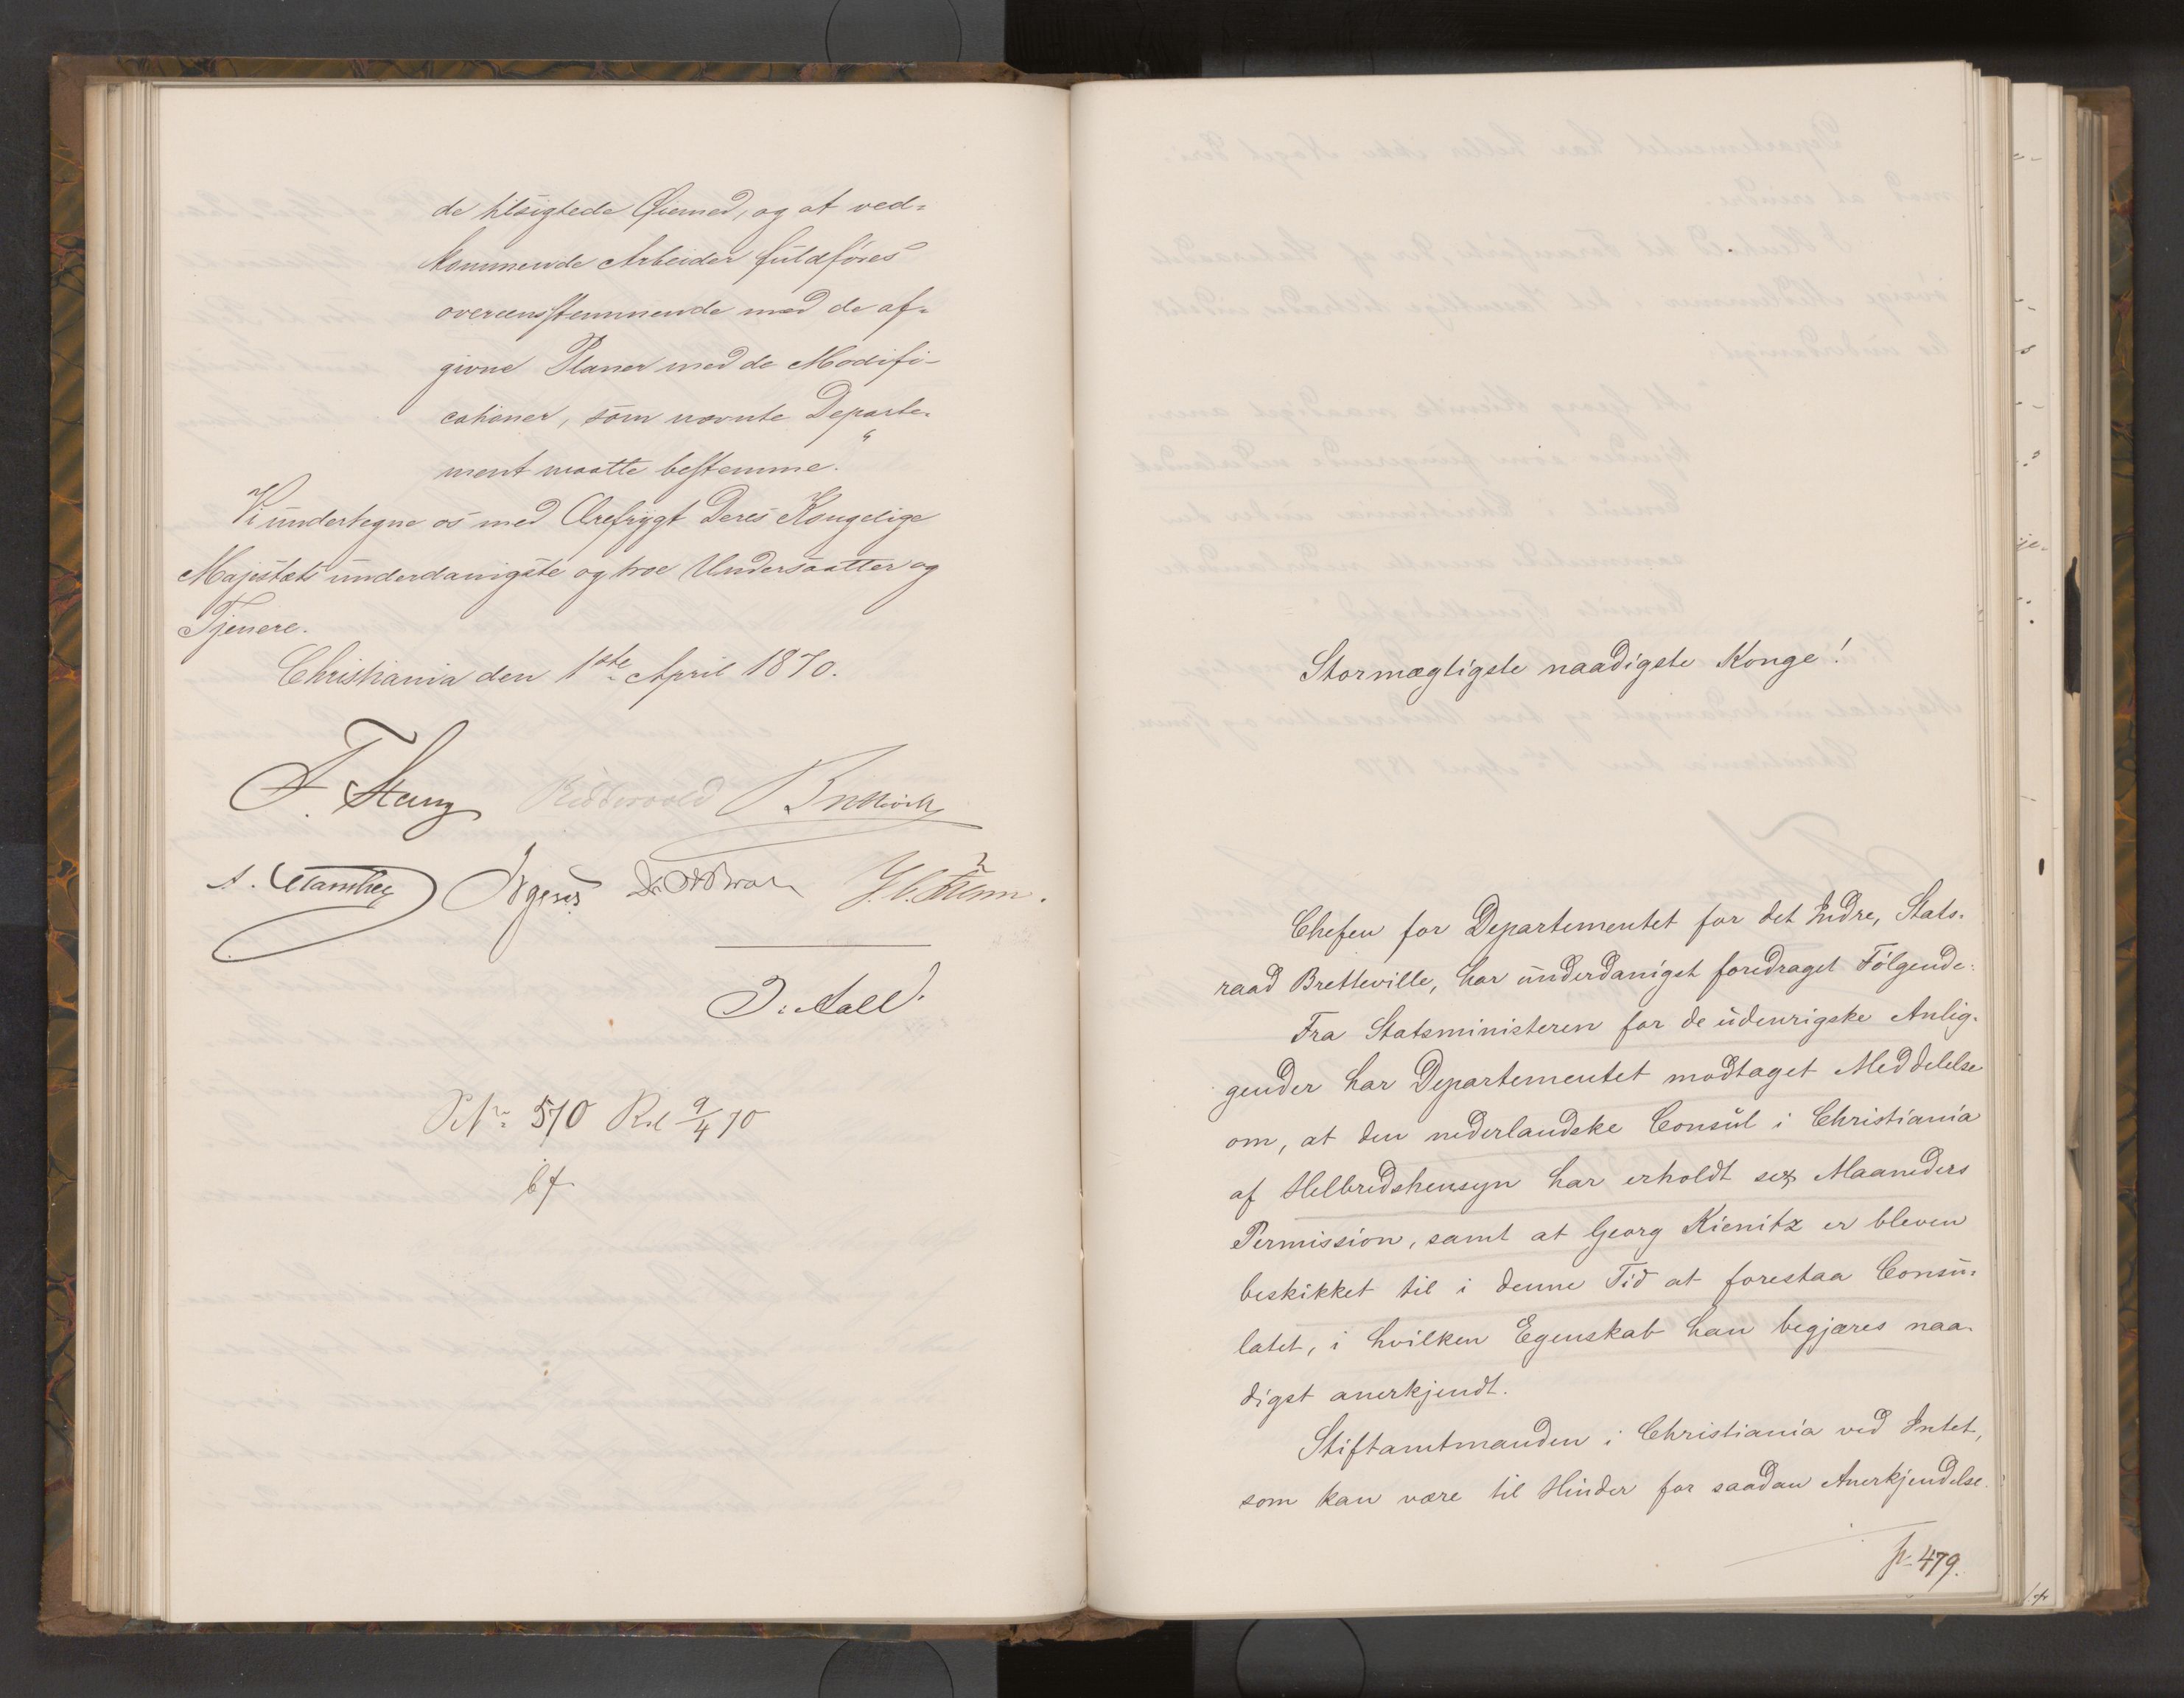 de tilsigtede Øiemed, og at ved-
kommende Arbeider fuldføres
overeensstemmende med de af-
givne Planer med de Modifi-
cationer, som nævnte Departe-
ment maatte bestemme."
Vi undertegne os med Ærefrygt Deres Kongelige
Majestæts underdanigste og troe Undersaatter og
Tjenere.
Christiania den 1ste April 1870.
F. Stang Riddervold Bretteville
J. Aall
No 570 R.d 9/4 70
Stormægtigste naadigste Konge!
Chefen for Departementet for det Indre, Stats-
raad Bretteville, har underdanigst foredraget Følgende:
Fra Statsministeren for de udenrigske Anlig-
gender har Departementet modtaget Meddelelse
om, at den nederlandske Consul i Christiania
af Helbredshensyn har erholdt sex Maaneders
Permission, samt at Georg Kienitz er bleven
beskikket til i denne Tid at forestaa Consu-
latet, i hvilken Egenskab han begjæres naa-
digst anerkjendt.
Stiftamtmanden i Christiania ved Intet,
som kan være til Hinder for saadan Anerkjendelse.
p. 479.